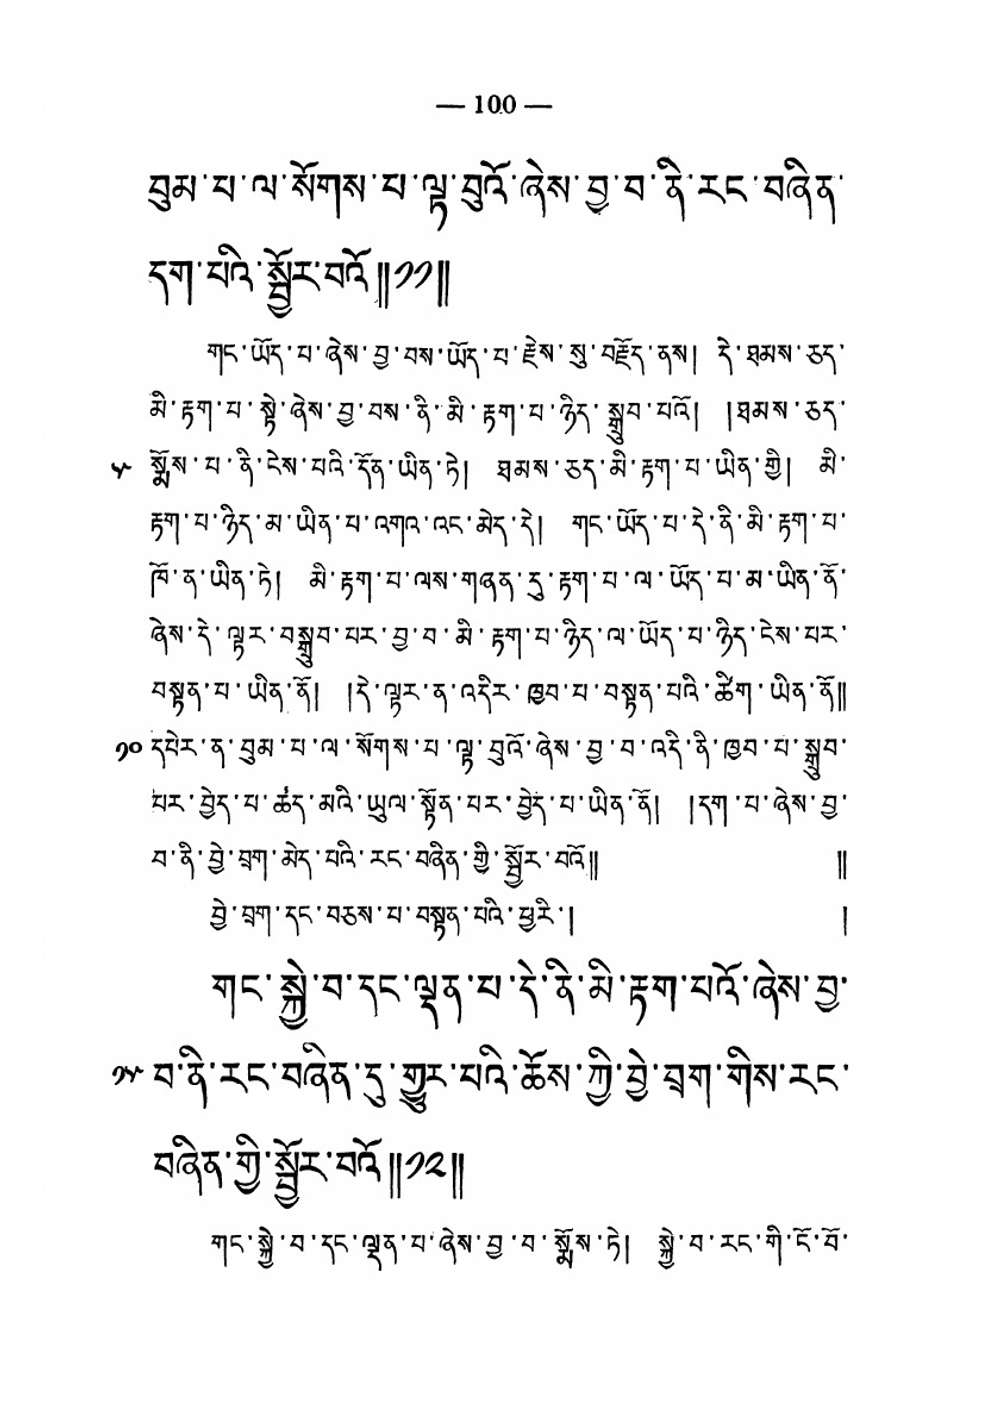 — 100 —
བུམ་པ་ལ་སོགས་པ་ལྟ་བུའོ་ཞེས་བྱ་བ་ནི་རང་བཞིན་
དག་པའི་སྦྱོར་བའོ༎༡༡༎
གང་ཡོད་པ་ཞེས་བྱ་བས་ཡོད་པ་རྗེས་སུ་བརྗོད་ནས། དེ་ཐམས་ཅད་
མི་རྟག་པ་སྟེ་ཞེས་བྱ་བས་ནི་མི་རྟག་པ་ཉིད་སྒྲུབ་པའོ། །ཐམས་ཅད་
༥ སྨོས་པ་ནི་ངེས་པའི་དོན་ཡིན་ཏེ། ཐམས་ཅད་མི་རྟག་པ་ཡིན་གྱི། མི་
རྟག་པ་ཉིད་མ་ཡིན་པ་འགའ་འང་མེད་དེ། གང་ཡོད་པ་དེ་ནི་མི་རྟག་པ་
ཁོ་ན་ཡིན་ཏེ། མི་རྟག་པ་ལས་གཞན་དུ་རྟག་པ་ལ་ཡོད་པ་མ་ཡིན་ནོ་
ཞེས་དེ་ལྟར་བསྒྲུབ་པར་བྱ་བ་མི་རྟག་པ་ཉིད་ལ་ཡོད་པ་ཉིད་ངེས་པར་
བསྟན་པ་ཡིན་ནོ། །དེ་ལྟར་ན་འདིར་ཁྱབ་པ་བསྟན་པའི་ཚིག་ཡིན་ནོ༎
༡༠ དཔེར་ན་བུམ་པ་ལ་སོགས་པ་ལྟ་བུའོ་ཞེས་བྱ་བ་འདི་ནི་ཁྱབ་པ་སྒྲུབ་
པར་བྱེད་པ་ཚད་མའི་ཡུལ་སྟོན་པར་བྱེད་པ་ཡིན་ནོ། །དག་པ་ཞེས་བྱ་
བ་ནི་བྱེ་བྲག་མེད་པའི་རང་བཞིན་གྱི་སྦྱོར་བའོ༎ ༎
བྱེ་བྲག་དང་བཅས་པ་བསྟན་པའི་ཕྱིར་། །
གང་སྐྱེ་བ་དང་ལྡན་པ་དེ་ནི་མི་རྟག་པའོ་ཞེས་བྱ་
༡༥ བ་ནི་རང་བཞིན་དུ་གྱུར་པའི་ཆོས་ཀྱི་བྱེ་བྲག་གིས་རང་
བཞིན་གྱི་སྦྱོར་བའོ༎༡༢༎
གང་སྐྱེ་བ་དང་ལྡན་པ་ཞེས་བྱ་བ་སྨོས་ཏེ། སྐྱེ་བ་རང་གི་ངོ་བོ་